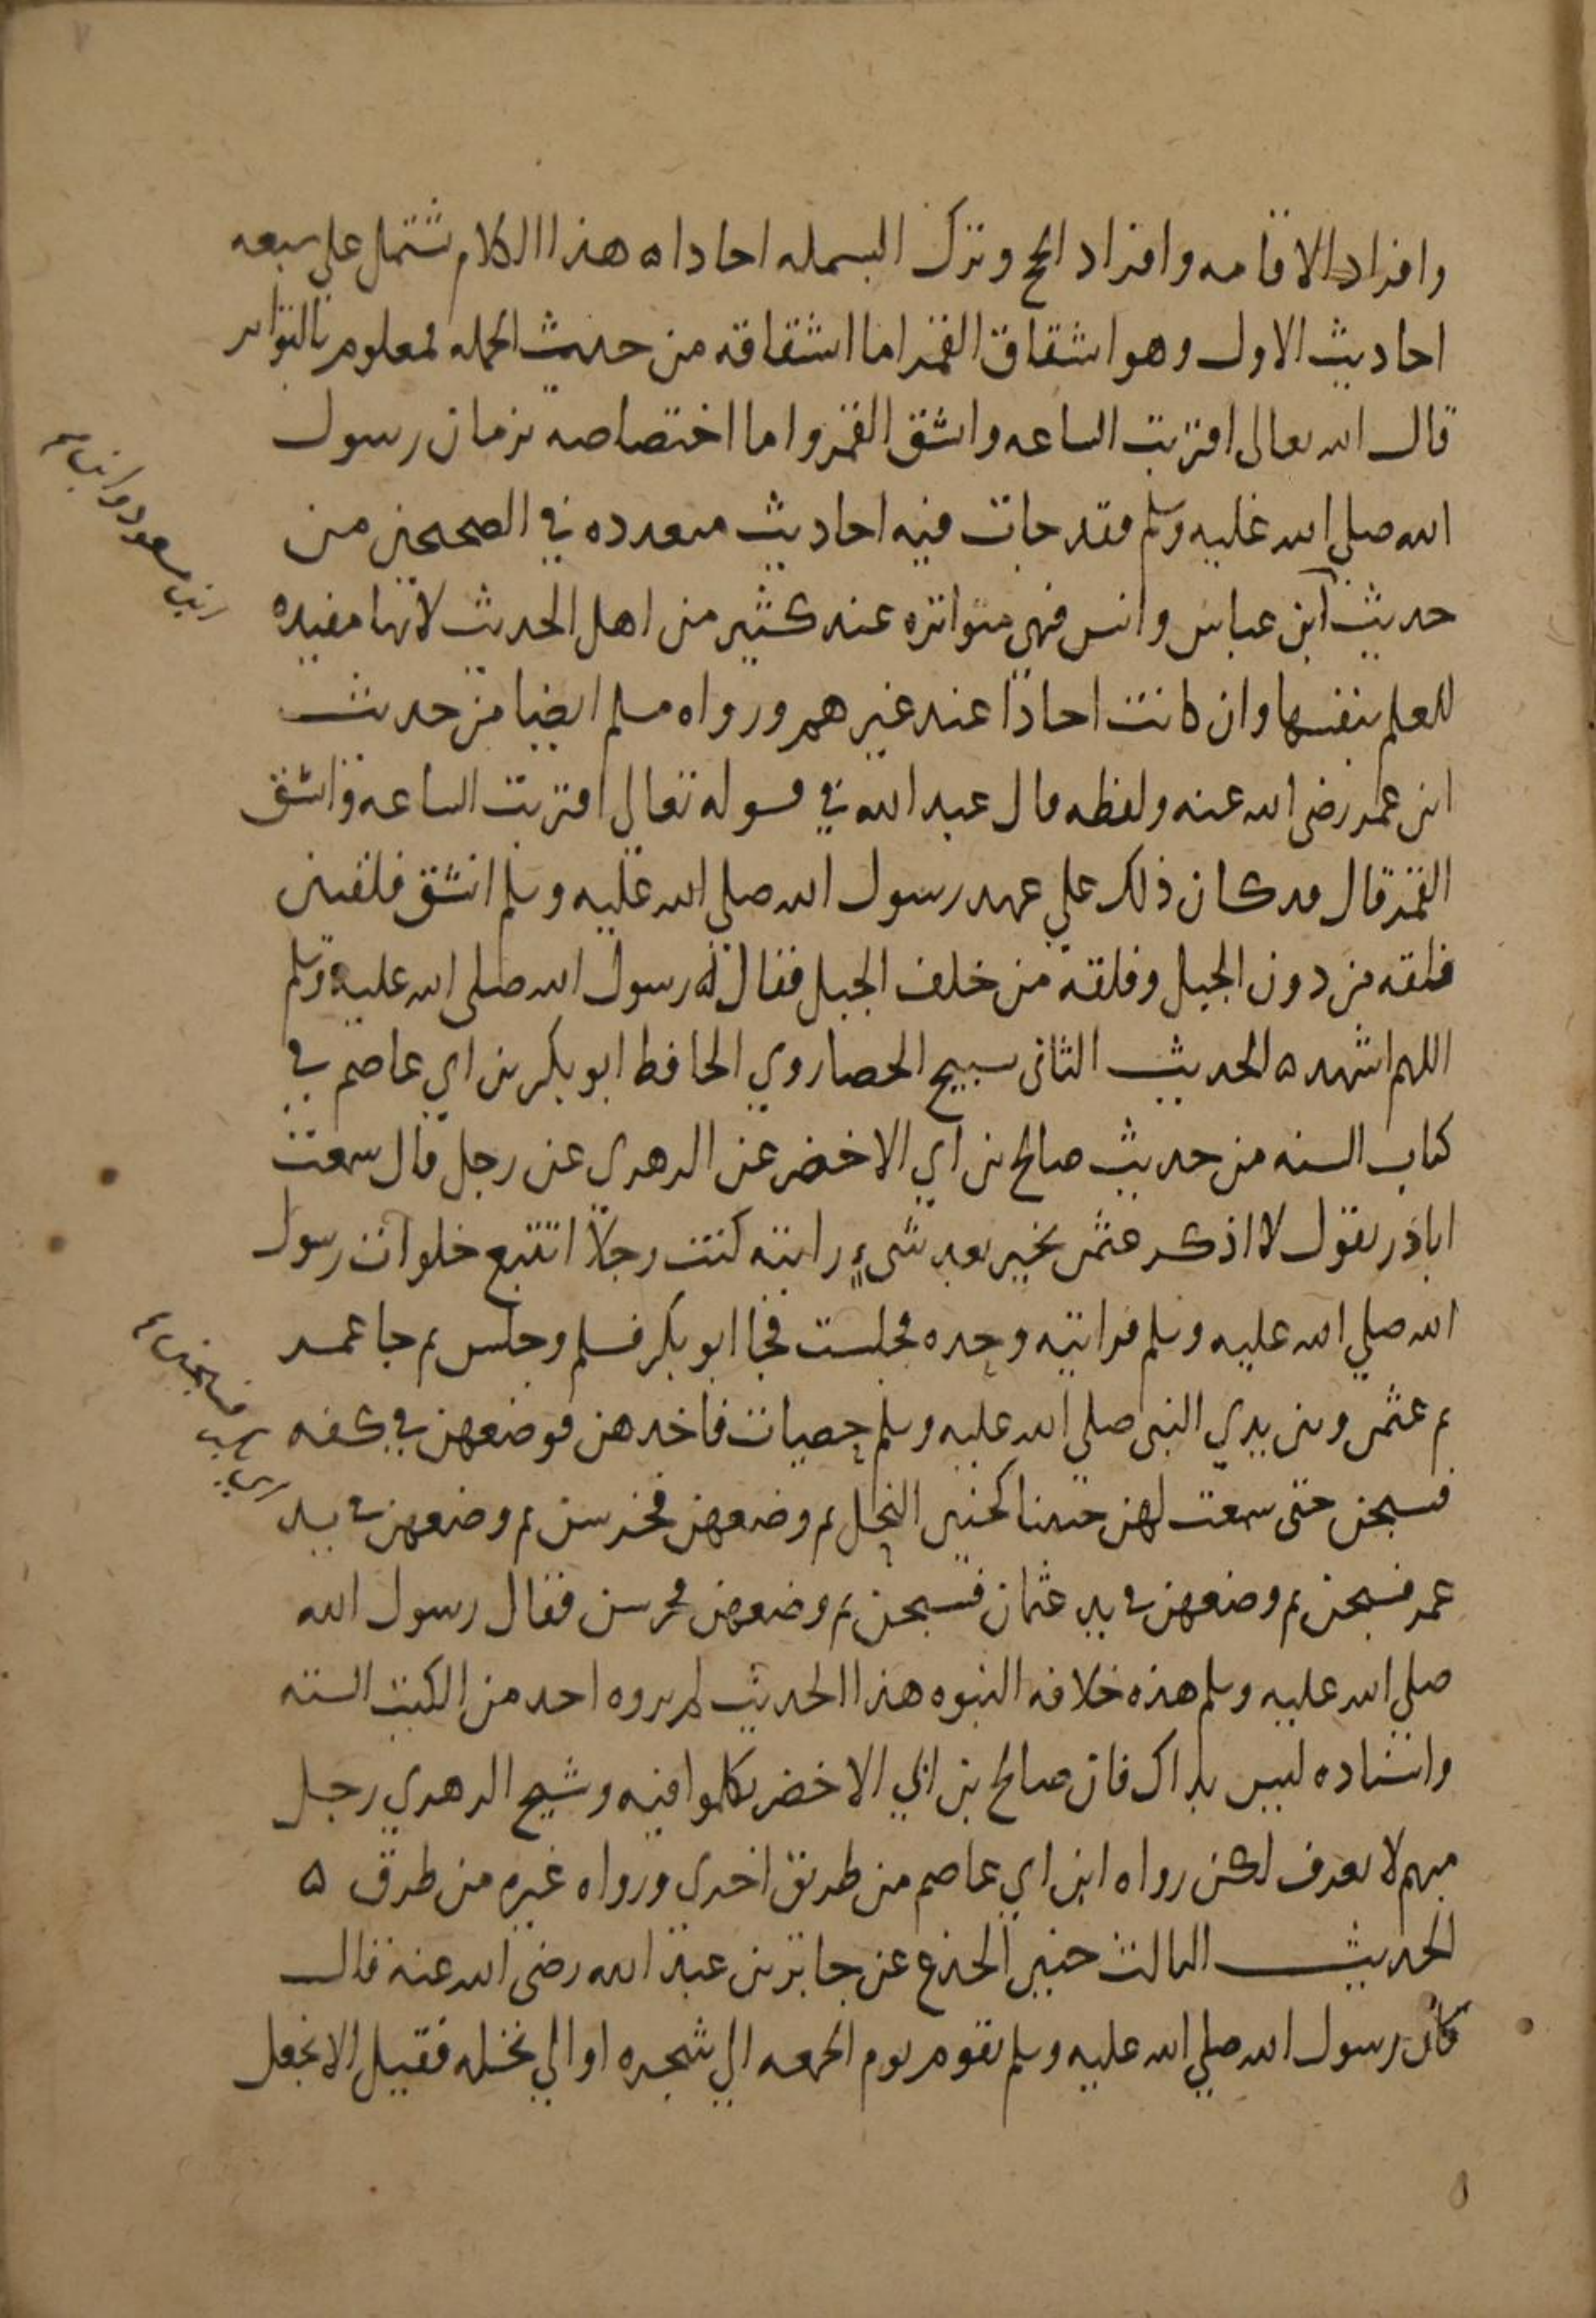 وافراد الاقامه وافراد الحج وترك البسمله احادا ه هذا الكلام يشتمل على سبعه
احاديث الاول وهو انشقاق القمر اما انشقاقه من حديث الجمله فمعلوم بالتواتر
قال الله تعالى اقتربت الساعه وانشق القمر واما اختصاصه بزمان رسول
الله صلى الله عليه وسلم فقد جات فيه احاديث متعدده في الصحيحين من
حديث ابن عباس وانس فهي متواتره عند كثير من اهل الحديث لانها مفيده
ابن مسعود وابن
للعلم بنفسها وان كانت احادا عند غيرهم ورواه مسلم ايضا من حديث
ابن عمر رضى الله عنه ولفظه قال عبد الله في قوله تعالى اقتربت الساعه وانشق
القمر قال قد كان ذلك على عهد رسول الله صلى الله عليه وسلم انشق فلقتين
فلقه من دون الجبل وفلقه من خلف الجبل فقال رسول الله صلى الله عليه وسلم
اللهم اشهد ه الحديث الثانى تسبيح الحصا روي الحافظ ابو بكر بن ابي عاصم في
كتاب السنه من حديث صالح بن ابي الاخضر عن الزهري عن رجل قال سمعت
اباذر يقول لا اذكر عثمن بخير بعد شىء رايته كنت رجلا اتتبع خلوات رسول
الله صلي الله عليه وسلم فرايته وحده فجلست فجا ابو بكر فسلم وجلس ثم جا عمر
ثم عثمن وبين يدي النبى صلى الله عليه وسلم حصيات فاخذهن فوضعهن في كفه
فسبحن حتى سمعت لهن حنينا كحنين النحل ثم وضعهن فخرسن ثم وضعهن في يد
عمر فسبحن ثم وضعهن في يد عثمان فسبحن ثم وضعهن فخرسن فقال رسول الله
صلي الله عليه وسلم هذه خلافه النبوه هذا الحديث لم يروه احد من الكتب السته
واسناده ليس بذاك فان صالح بن ابي الاخضر تكلموا فيه وشيخ الزهري رجل
مبهم لا يعرف لكن رواه ابن ابي عاصم من طريق اخرى ورواه غيره من طرق ه
الحديث الثالث حنين الجذع عن جابر بن عبد الله رضى الله عنه قال
كان رسول الله صلي الله عليه وسلم يقوم يوم الجمعه الى شجره او الي نخله فقيل الا نجعل